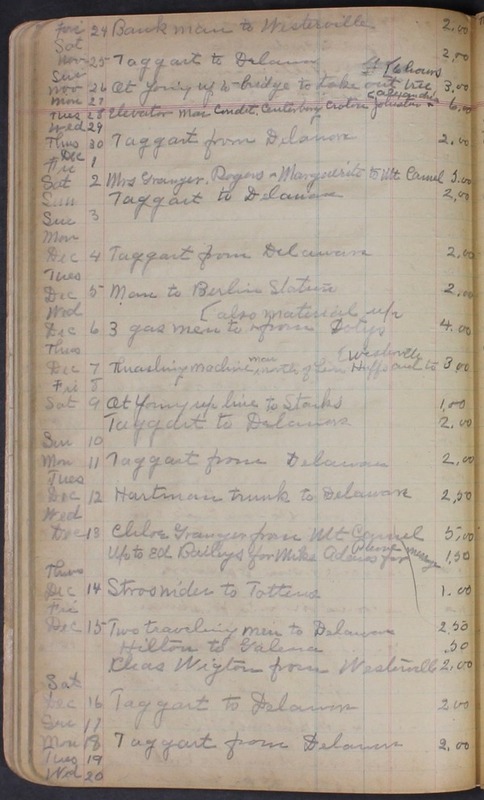 Fri 24 Bank man to Westerville 2,00
Sat
Nov 25 Taggart to Delaware 2,00
Sun
Nov 26 At Young up to bridge to take out tree 3,00
Mon 27
Tues 28 Elevator man Condit, Centerburg Croton Johnston & 6,00
Wed 29
Thus 30 Taggart from Delaware 2,00
Dec
Fri 1
Sat 2 Mrs Granger, Rogers & Marguerite to Mt Carmel 3.00
Sun Taggart to Delaware 2,00
Sue 3
Mon
Dec 4 Taggart from Delaware 2,00
Tues
Dec 5 Man to Berlin Station 2,00
Wed (also material up
Dec 6 3 gas men to & from Dotys 4,00
Thus
Dec 7 Thrashing machine man, north of Huffs and to Westerville 3,00
Fri 8
Sat 9 At Young up line to Starks 1,00
Taggart to Delaware 2,00
Sun 10
Mon 11 Taggart from Delaware 2,00
Tues
Dec 12 Hartman trunk to Delaware 2,50
Wed
Dec 13 Chloe Granger from Mt Carmel 5,00
Up to Ed Baileys for Mike Adams for phone message 1,50
Thus
Dec 14 Strosnider to Tottens 1.00
Fri
Dec 15 Two traveling men to Delaware 2,50
Hilton to Galena ,50
Chas Wigton from Westerville 2,00
Sat
Dec 16 Taggart to Delaware 2,00
Sue 17
Mon 18 Taggart from Delaware 2,00
Tues 19
Wed 20